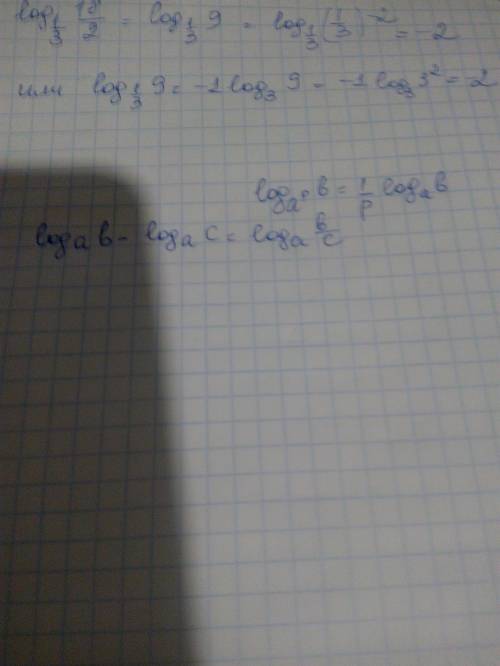 log_{1/3} 18/2 = log_{1/3} 9 = log_{1/3} (1/3)^{-2} = -2
или log_{1/3} 9 = -1 log_3 9 = -1 log_3 3^2 = -2
log_{a^p} b = 1/p log_a b
log_a b - log_a c = log_a b/c